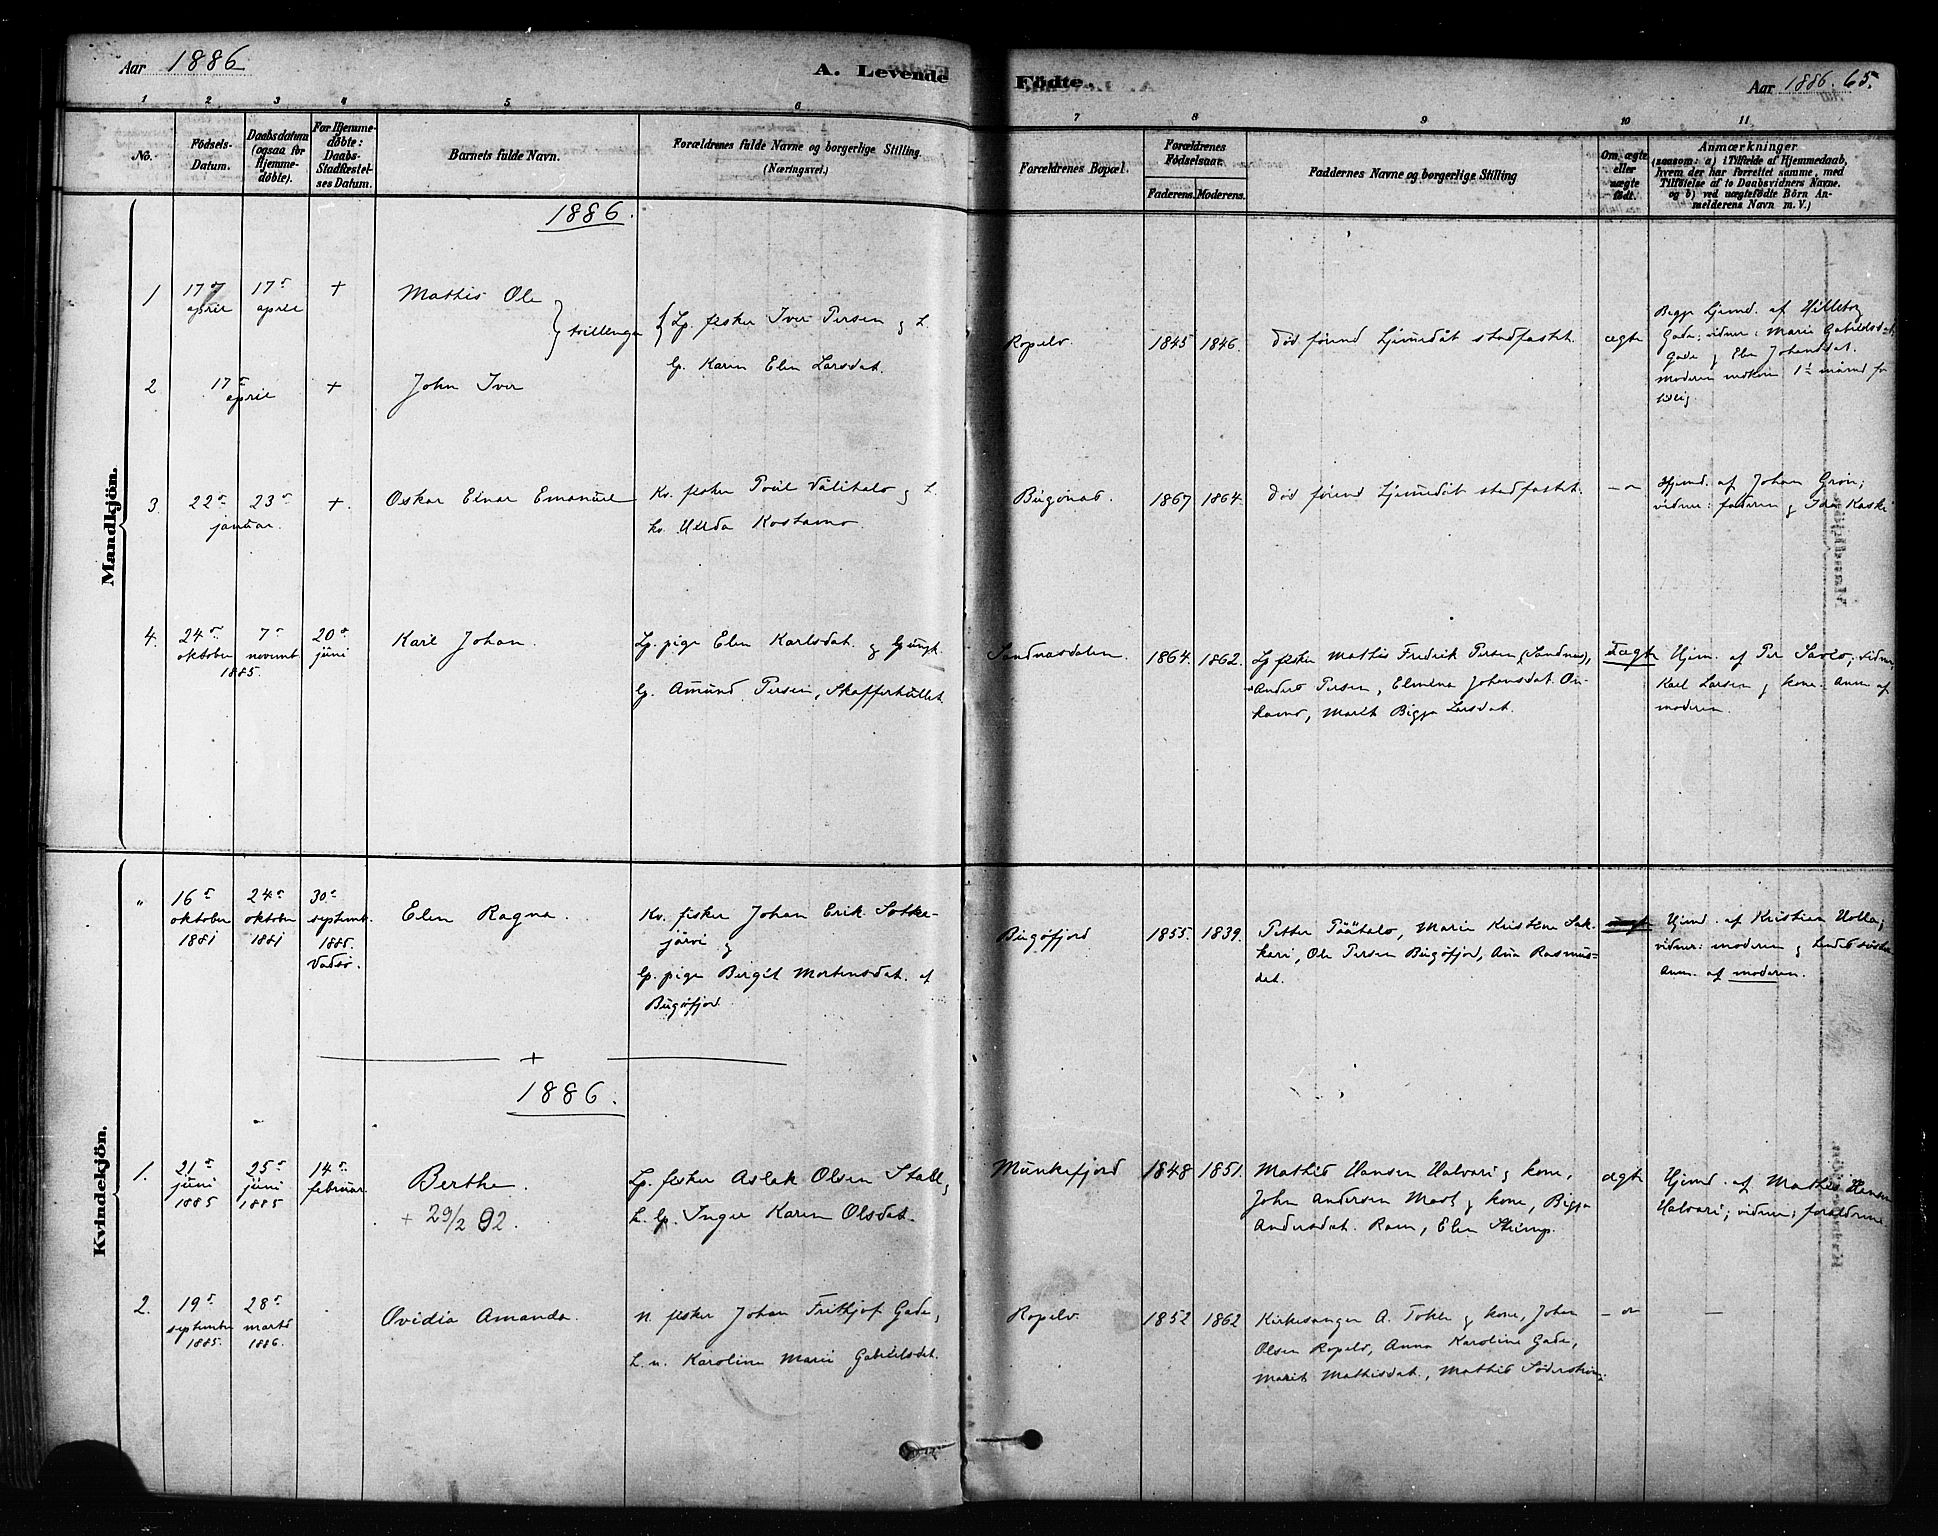 Aar 1886
A. Levende Födte.
Aar 1886. 65.
1 2 3 4 5 6 7 8 9 10 11
No.
Födsels-
Datum.
Daabsdatum
(ogsaa for
Hjemme-
döbte).
For Hjemme-
döbte:
Daabs-
Stadfæstel-
ses Datum.
Barnets fulde Navn.
Forældrenes fulde Navne og borgerlige Stilling.
(Næringsvei.)
Forældrenes Bopæl.
Forældrenes
Födselsaar.
Faderens. Moderens.
Faddernes Navne og borgerlige Stilling
Om ægte
eller
uægte
födt.
Anmærkninger
(saasom: a) i Tilfælde af Hjemmedaab,
hvem der har forrettet samme, med
Tilföielse af to Daabsvidners Navne.
og b) ved uægtefödte Börn An-
melderens Navn m. V.)
Mandkjön.
1886.
1 17 april 17 april + Mathis Ole
2 17 april + John Iver
tvillinger
Lp. fisker Iver Persen og h.
lp. Karen Elen Larsdat.
Ropelv. 1845 1846. død førend hjemmedåb stadfæstet. ægte
Begge hjemd. af
Gade; vidner: Marie
Gade og Elen Johansdat.
moderen nedkom 1½ måned for
tidlig.
3. 22 23 januar. + Oskar Einar Emanuel
Kv. fisker Poul Välitalo og h.
kv. Ulrda Kostamo
Bugönæs. 1867 1864. død førend hjemmedåb stadfæstet.
Hjemd. af Johan Grön;
vidner: faderen og Ida Koski
4. 24 oktober 7 novemb 1885. 20 juni Karl Johan.
Lp. pige Elen Karlsdat. og lp ungk.
lp. Amund Persen, Skafferhullet.
Sandnæsdalen. 1864. 1862.
Lp fisker Mathis Fredrik Persen (Sandnæs),
Anders Persen, Elmine Johansdat.
Marit Bigga Larsdat.
Uægte Hjem. af Per Savio, vidner
Karl Larsen og kone. Anm. af
moderen.
Kvindekjön.
" 16 oktober 1881 24 oktober 1881 30 septemb. 1886. Vadsö. Elen Ragna.
Kv. fisker Johan Erik Sotka-
järvi og
lp. pige Bergit Mortensdat. af
Bugöfjord.
Bugöfjord 1855. 1839.
Petter Päätalo, Marie Kristine Sak-
kari, Ole Persen Bugöfjord, Ana Rasmus-
dat.
Hjemd. af Kristian Holla;
vidner: moderen og
Anm. af moderen.
+
1886.
1. 21 juni 1885 25 juni 1885 14 februar. Berthe.
+ 29/2 92.
Lp. fisker Aslak Olsen Stall,
h. lp. Inger Karen Olsdat.
Munkefjord 1848 1851.
Mathis Hansen Halvari og kone,
John Andersen Mast og kone, Bigga
Andersdat. Ram, Elen Skimp.
ægte
Hjemd. af Mathis Hansen
Halvari; vidner; forældrene
2. 19 september 1885. 28 marts 1886. Ovidia Amanda.
n. fisker Johan Frithjof Gade,
h. n. Karoline Marie Gabrielsdat.
Ropelv. 1852 1862
Kirkesanger A. Tokle og kone, Johan
Olsen Ropelv, Anna Karoline Gade,
Marit Mathisdat., Mathis Söderström.